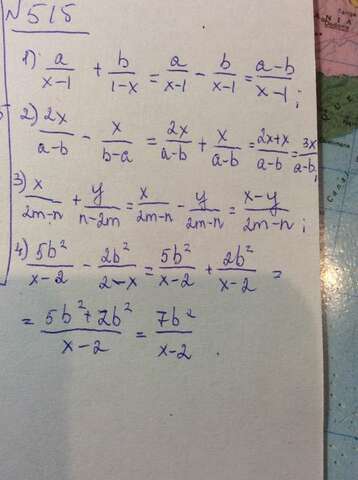 №515
1) a/(x-1) + b/(1-x) = a/(x-1) - b/(x-1) = (a-b)/(x-1);
2) 2x/(a-b) - x/(b-a) = 2x/(a-b) + x/(a-b) = (2x+x)/(a-b) = 3x/(a-b);
3) x/(2m-n) + y/(n-2m) = x/(2m-n) - y/(2m-n) = (x-y)/(2m-n);
4) 5b²/(x-2) - 2b²/(2-x) = 5b²/(x-2) + 2b²/(x-2) =
= (5b²+2b²)/(x-2) = 7b²/(x-2)